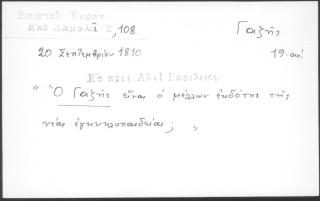 Ἐπιστολ Κοραῆ
Ἐκδ Δαμαλᾶ 2,108
Γαζῆς
20 Σεπτεμβρίου 1810
19. αἰ.
Ἐπ πρὸς Ἀλέξ Βασιλείου
" Ὁ Γαζῆς εἶναι ὁ μέλλων ἐκδότης τῆς
νέας ἐγκυκλοπαιδείας; "